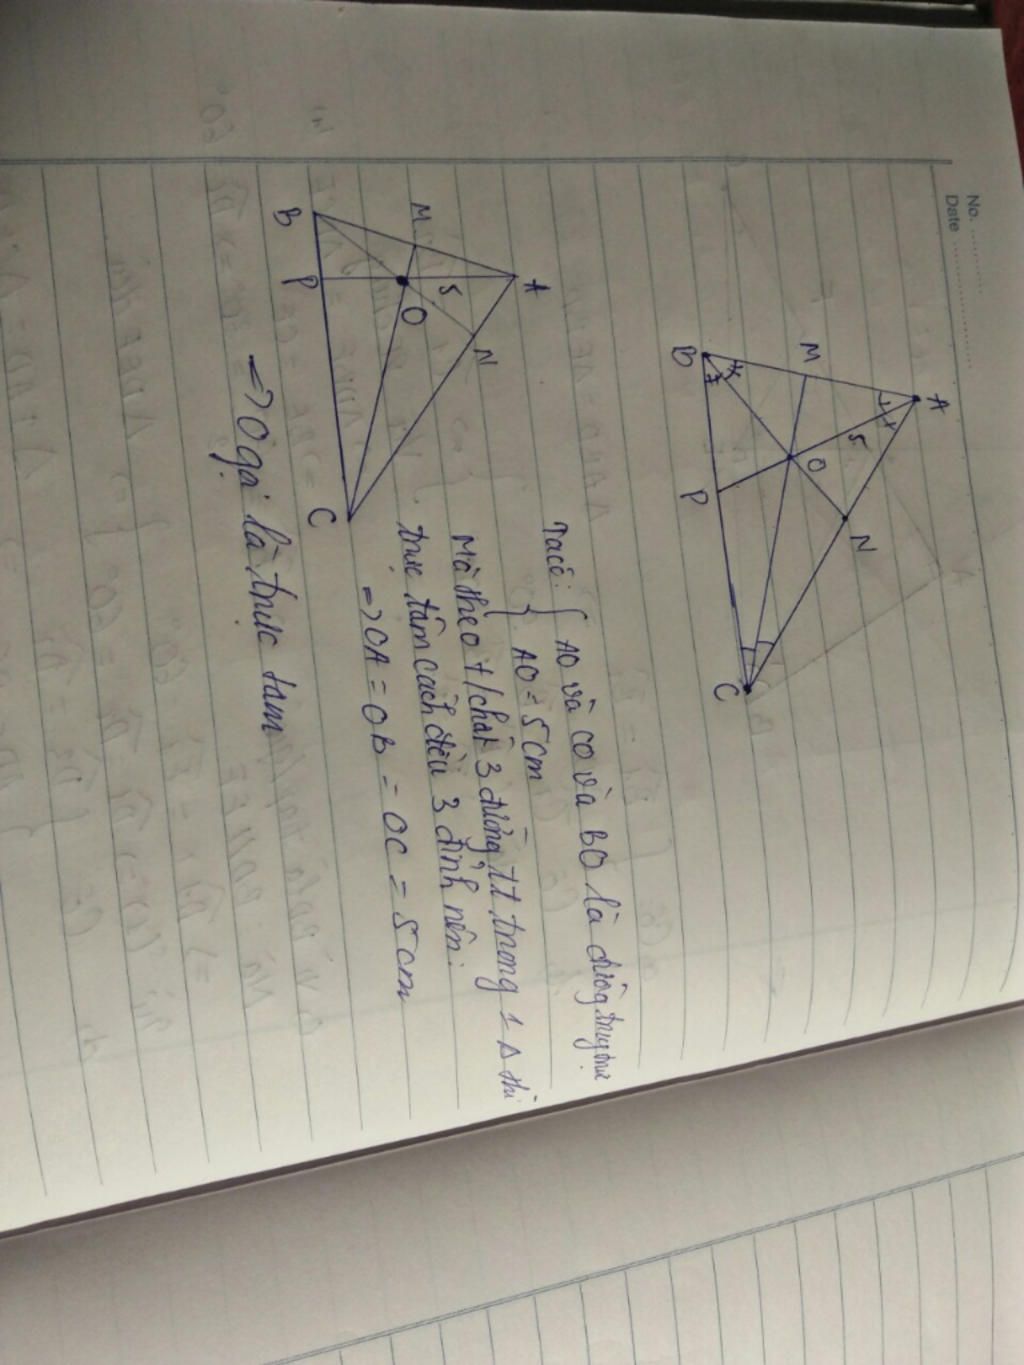 No.
Date
A
M
5
O
N
B
P
C
Ta có: { AO và CO và BO là đường trung trực
{ AO = 5 cm
Mà theo t/chất 3 đường tt trong 1 Δ thì
trực tâm cách đều 3 đỉnh nên:
=> OA = OB = OC = 5cm
A
M
5
N
O
B
P
C
=> O gọi là trực tâm